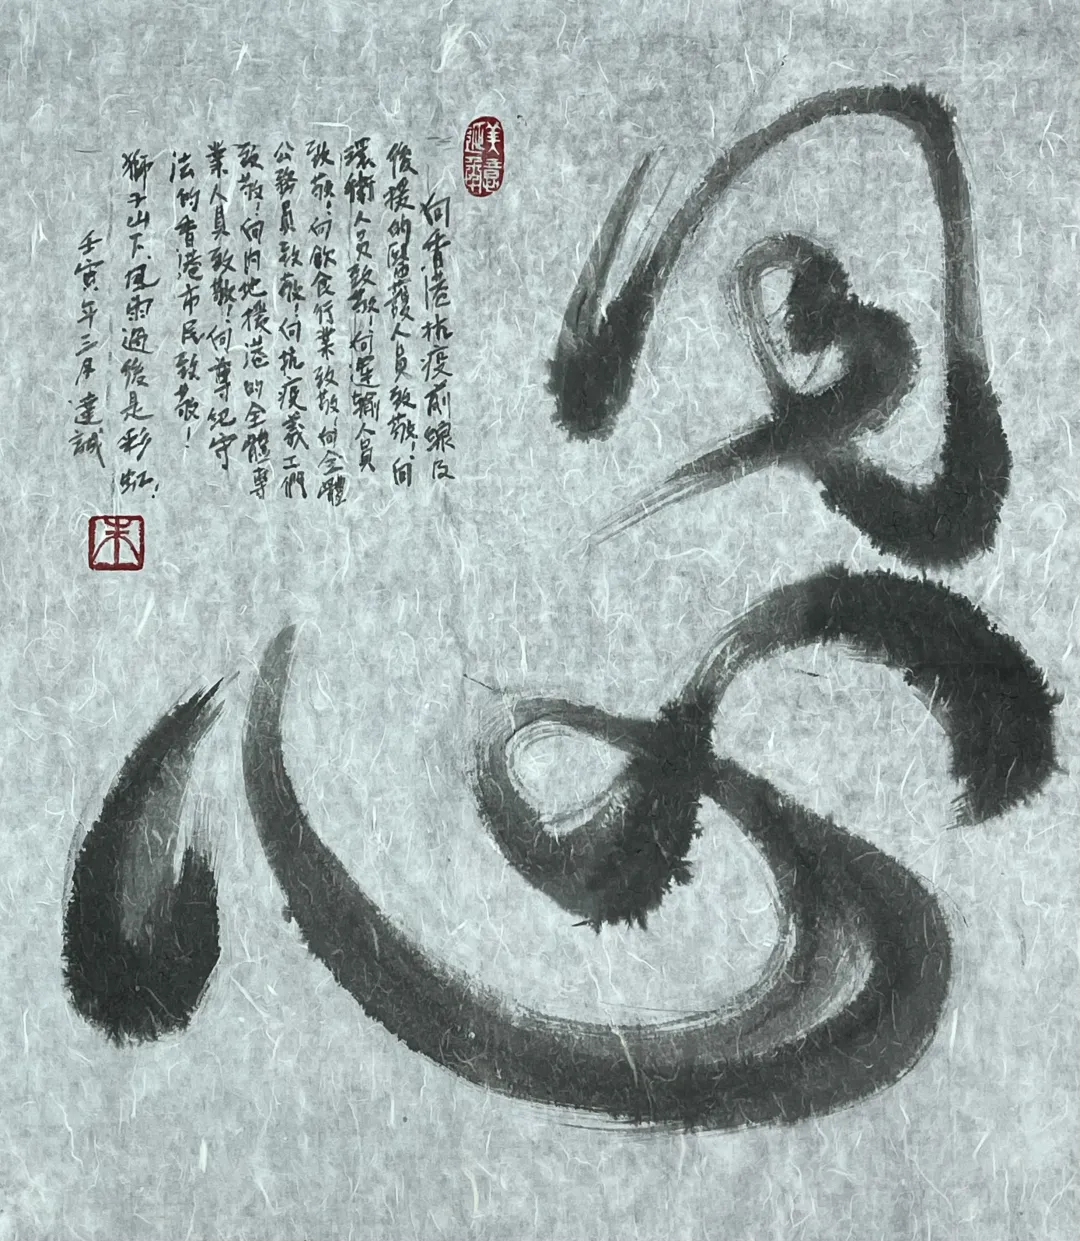 同心
美意延年
向香港抗疫前線及
後援的醫護人員致敬！向
環衛人員致敬！向運輸人員
致敬！向飲食行業致敬！向全體
公務員致敬！向抗疫義工們
致敬！向內地援港的全體專
業人員致敬！向尊紀守
法的香港市民致敬！
獅子山下，風雨過後是彩虹！
壬寅年三月達誠
朱